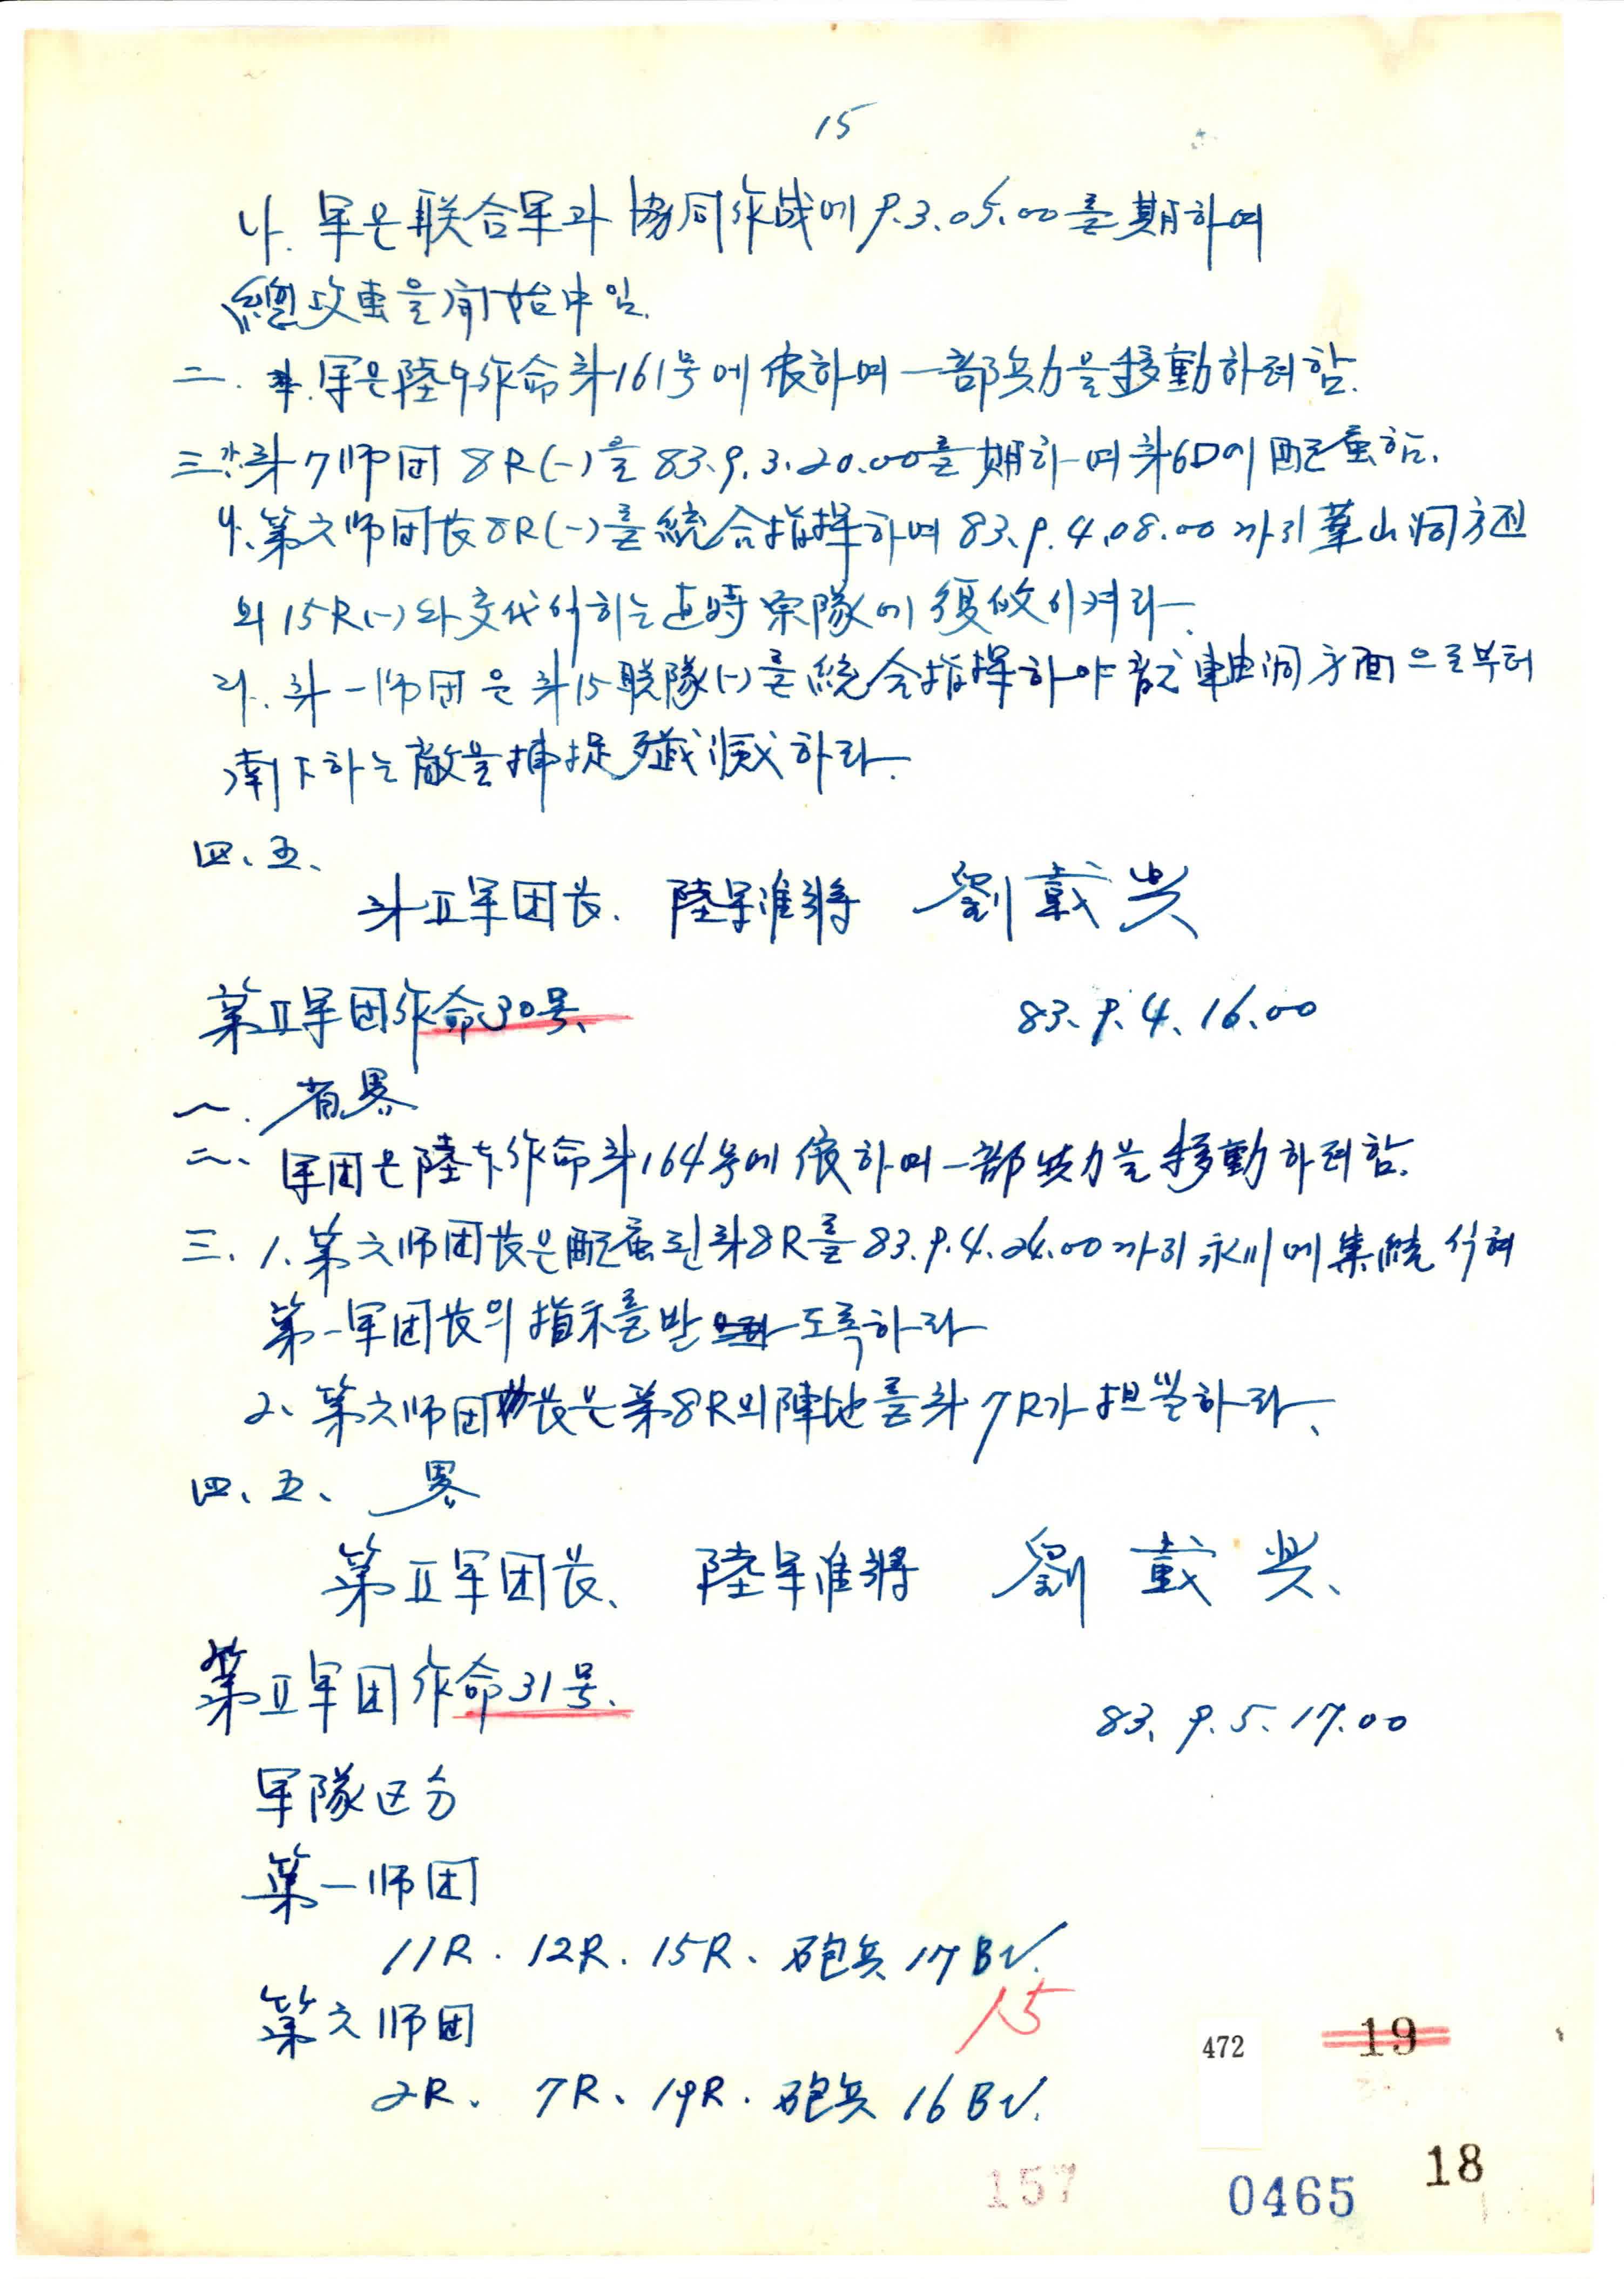 15
나. 軍은 联合军과 協同作战에 9.3.05.00를 期하여
總攻擊을 開始中임.
二. 軍은 陸本作命 第161号에 依하여 一部兵力을 移動하려 함.
三. 가. 第7师团 8R(-)을 83.9.3.20.00를 期하여 第6D에 配属함.
나. 第六师团长 8R(-)를 統合指揮하여 83.9.4.08.00 까지 華山洞方面
의 15R(-)와 交代 하는 即時 原隊에 復故이켜라.
라. 第一师团은 第15联隊(-)를 統合指揮하야 方面으로부터
南下하는 敵을 捕捉 殲滅하라.
四、五、
第II军团长. 陸军准将 劉載興
第II军团作命30号、 83、9.4、16.00
一. 省畧
二、 军团은 陸本作命 第164号에 依하여 一部兵力을 移動하려 함.
三. 1. 第六师团长은 配属된 第8R를 83.9.4.24.00 까지 永川에 集結 식혀
第一军团长의 指示를 받도록하라
2、 第六师团长은 第8R의 陣地를 第7R가 担当하라、
四、五、 畧
第II军团长、 陸军准将 劉載興、
第II军团作命31号. 83、9.5.17.00
军隊区分
第一师团
11R. 12R. 15R、 砲兵 17Bn.
15
第六师团
2R、 7R、19R. 砲兵 16Bn.
472
19
157
0465
18